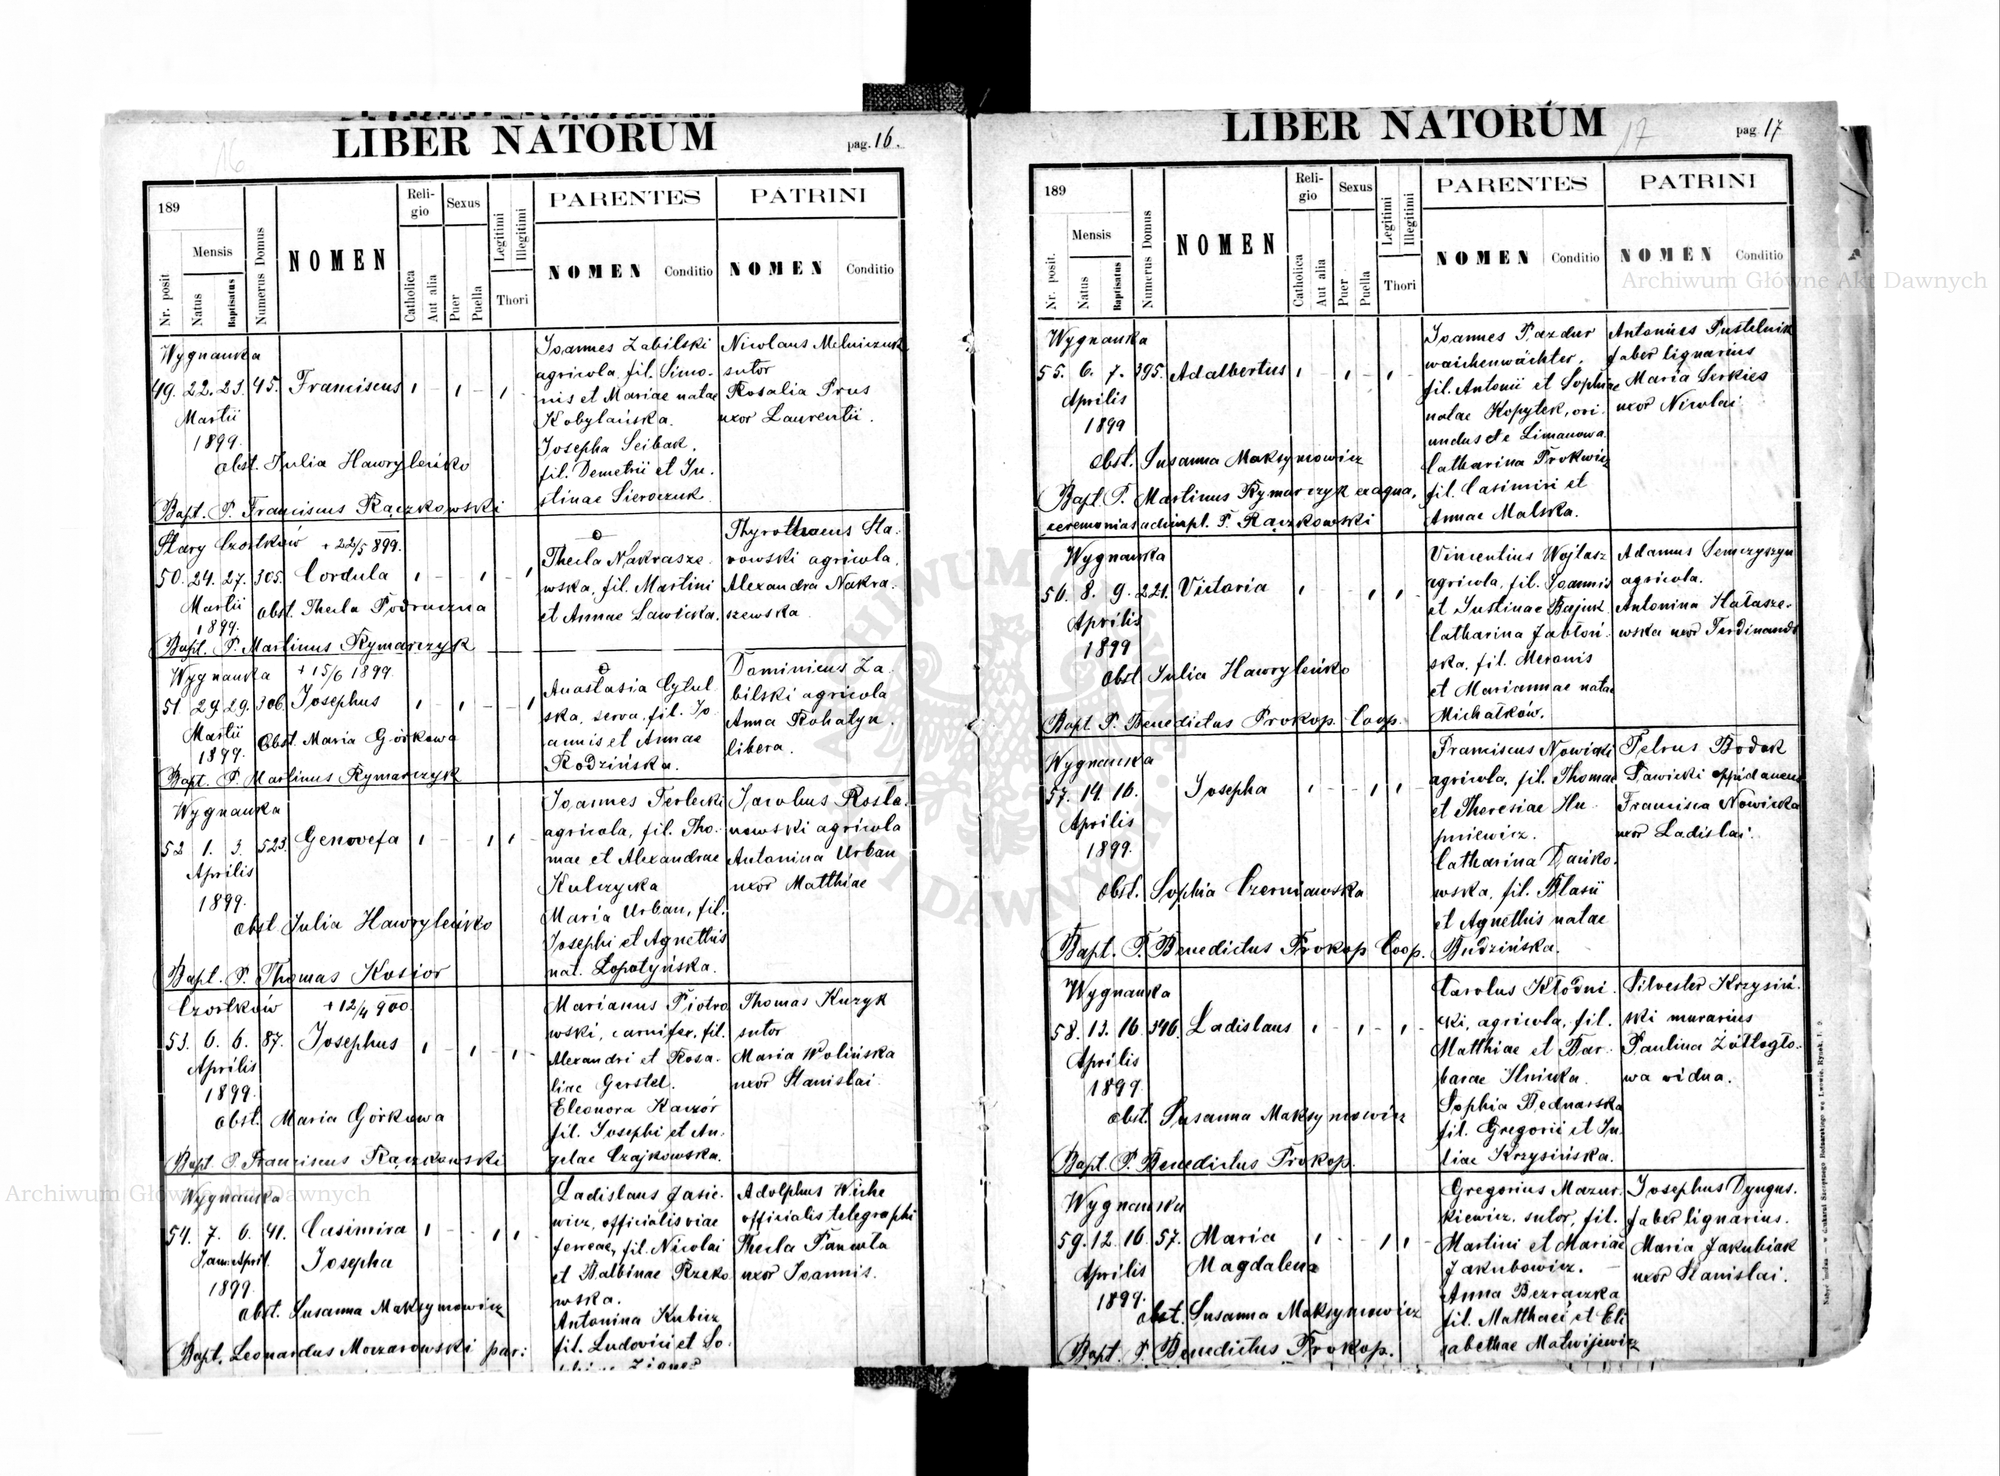 LIBER NATORUM
pag. 16.
16
189
Mensis
Nr. posit
Natus
Baptisatus
Numerus Domus
NOMEN
Religio
Catholica
Aut alia
Sexus
Puer
Puella
Legitimi
Illegitimi
Thori
PARENTES
NOMEN
Conditio
PATRINI
NOMEN
Conditio
Wygnanka
49. 22. 23. 45. Franciscus
Martii
1899.
Obst. Julia Hawryleńko
Bapt. P. Franciscus Rączkowski
Joannes Zabilski
agricola, fil. Simo-
nis et Mariae natae
Kobylańska.
Josepha Seibak,
fil. Demetrii et Ju-
stinae Sieroczuk
Nicolaus Melniczuk
sutor
Rosalia Prus
uxor Laurentii.
Stary Czortków + 22/5 899.
50. 24. 27. 305. Cordula
Martii
1899.
Obst. Thecla Podruczna
Bapt. P. Martinus Rymarczyk
Thecla Nakrasze-
wska, fil. Martini
et Annae Sawicka.
Sta-
rowski agricola,
Alexandra Nakra-
szewska
Wygnanka + 15/6 1899.
51 29. 29. 306. Josephus
Martii
1899.
Obst. Maria Górkowa
Bapt. P. Martinus Rymarczyk
Anastasia Cytul-
ska, serva, fil. Jo-
annis et Annae
Rodzińska.
Dominicus Za-
bilski agricola
Anna Rohatyn
libera.
Wygnanka
52 1. 3. 523. Genovefa
Aprilis
1899.
Obst. Julia Hawryleńko
Bapt. P. Thomas Kosior
Joannes Terlecki
agricola, fil. Tho-
mae et Alexandrae
Kulczycka
Maria Urban, fil.
Josephi et Agnethis
nat. Łopatyńska.
Jacobus Rosta-
nowski agricola
Antonina Urban
uxor Matthiae
Czortków + 12/4 900.
53. 6. 6. 87. Josephus
Aprilis
1899.
Obst. Maria Górkowa
Bapt. P. Franciscus Rączkowski
Marianus Piotro
wski, carnifex, fil.
Alexandri et Rosa-
liae Gerstel.
Eleonora Kaczór
fil. Josephi et An-
gelae Czajkowska.
Thomas Kuzyk
sutor
Maria Wolińska
uxor Stanislai.
Wygnanka
54. 7. 6. 41. Casimira
Januar. April. Josepha
1899.
Obst. Susanna Maksymowicz
Bapt. Leonardus Moczarowski par:
Ladislaus Jasie-
wicz, officialis viae
ferreae, fil. Nicolai
et Balbinae Rzeko
wska.
Antonina Kubicz
fil. Ludovici et So-
Adolphus Wiche
officialis telegraphi
Thecla Panenta
uxor Joannis.
LIBER NATORUM
pag. 17
17
189
Mensis
Nr. posit.
Natus
Baptisatus
Numerus Domus
NOMEN
Religio
Catholica
Aut alia
Sexus
Puer
Puella
Legitimi
Illegitimi
Thori
PARENTES
NOMEN
Conditio
PATRINI
NOMEN
Conditio
Wygnanka
55. 6. 7. 395. Adalbertus
Aprilis
1899
Obst. Susanna Maksymowicz
Bapt. P. Martinus Rymarczyk ex aqua,
ceremonias adimpl. P. Rączkowski
Joannes Pazdur
waichenwächter,
fil. Antonii et Sophiae
natae Kopytek, ori-
undus de Limanowa.
Catharina Prokwicz
fil. Casimiri et
Annae Malska.
Antonius Pustelnik
faber lignarius
Maria Serkies
uxor Nicolai
Wygnanka
56. 8. 9. 221. Victoria
Aprilis
1899
Obst. Julia Hawryleńko
Bapt. P. Benedictus Prokop. Coop.
Vincentius Wojtasz
agricola, fil. Joannis
et Justinae Bajuk
Catharina Jabłoń-
ska, fil. Meronis
et Mariannae natae
Michałków.
Adamus Semczyszyn
agricola.
Antonina Hałasze-
wska uxor Ferdinandi
Wygnanka
57. 14. 16. Josepha
Aprilis
1899.
Obst. Sophia Czerniawska
Bapt. P. Benedictus Prokop Coop.
Franciscus Nowicki
agricola, fil. Thomae
et Theresiae Hu-
pniewicz.
Catharina Dańko-
wska, fil. Blasii
et Agnethis natae
Budzińska.
Petrus Bodak
Sawicki oppidaneus
Francisca Nowicka
uxor Ladislai.
Wygnanka
58. 13. 16. 396. Ladislaus
Aprilis
1899.
Obst. Susanna Maksymowicz
Bapt. P. Benedictus Prokop.
Carolus Kłodni-
cki, agricola, fil.
Matthiae et Bar-
barae Ilnicka.
Sophia Bednarska
fil. Gregorii et Ju-
liae Krzysińska.
Silvester Krzysiń-
ski murarius
Paulina Żółtogło-
wa vidua.
Wygnanka
59. 12. 16. 57. Maria
Aprilis Magdalena
1899.
Obst. Susanna Maksymowicz
Bapt. P. Benedictus Prokop.
Gregorius Mazur-
kiewicz, sutor, fil.
Martini et Mariae
Jakubowicz.
Anna Bezrączka
fil. Matthaei et Eli
sabethae Matwijewicz
Josephus Dyngus.
faber lignarius.
Maria Jakubiak
uxor Stanislai.
Archiwum Główne Akt Dawnych
Archiwum Główne Akt Dawnych